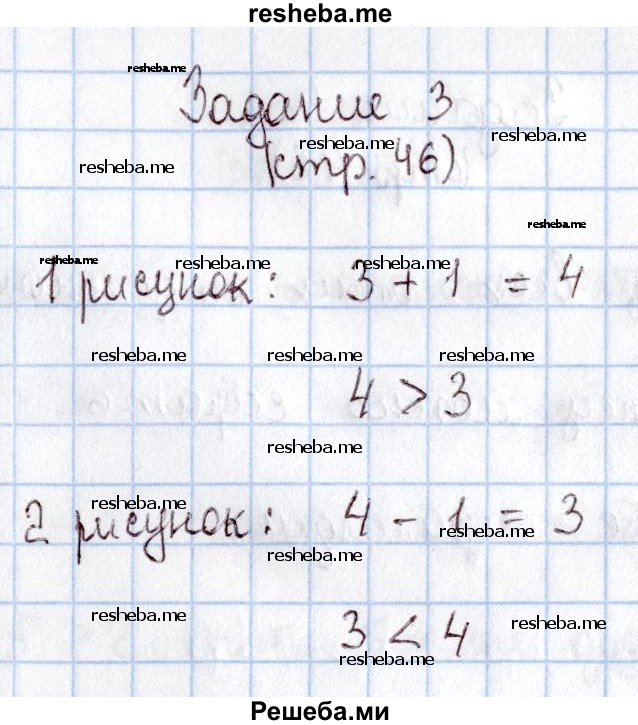 resheba.me
resheba.me
Задание 3
resheba.me resheba.me
resheba.me
(стр. 46)
resheba.me
resheba.me resheba.me resheba.me
1 рисунок: 3 + 1 = 4
resheba.me resheba.me resheba.me
4 > 3
resheba.me
resheba.me
2 рисунок: 4 - 1 = 3
resheba.me
resheba.me
resheba.me resheba.me
3 < 4
resheba.me
Решеба.ми